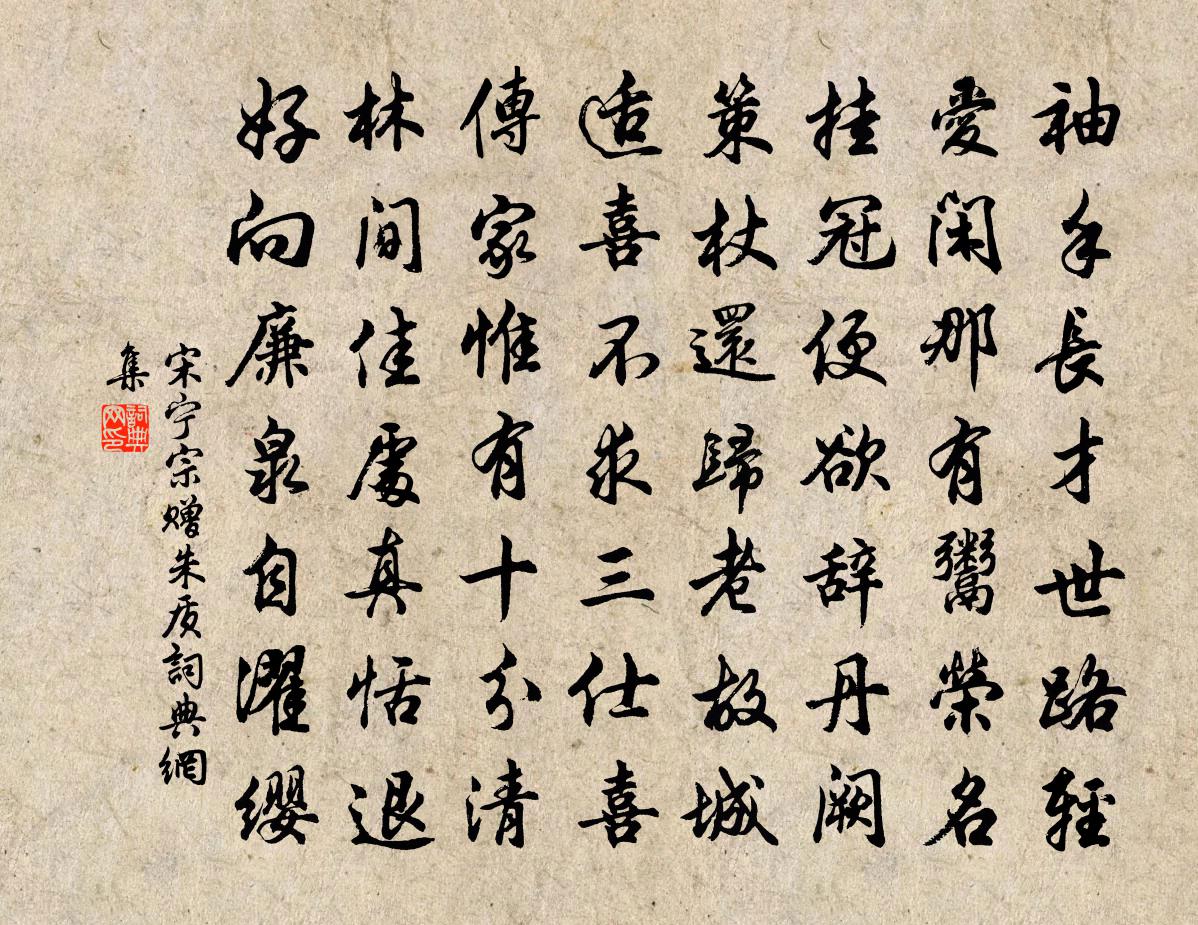 袖手長才世路輕
愛闲那有鬻榮名
挂冠便欲辞丹闕
策杖還歸老故城
适喜不求三仕喜
傳家惟有十分清
林间佳處真恬退
好向廉泉自濯缨
宋宁宗赠朱质詞典網
集
詞典
网印